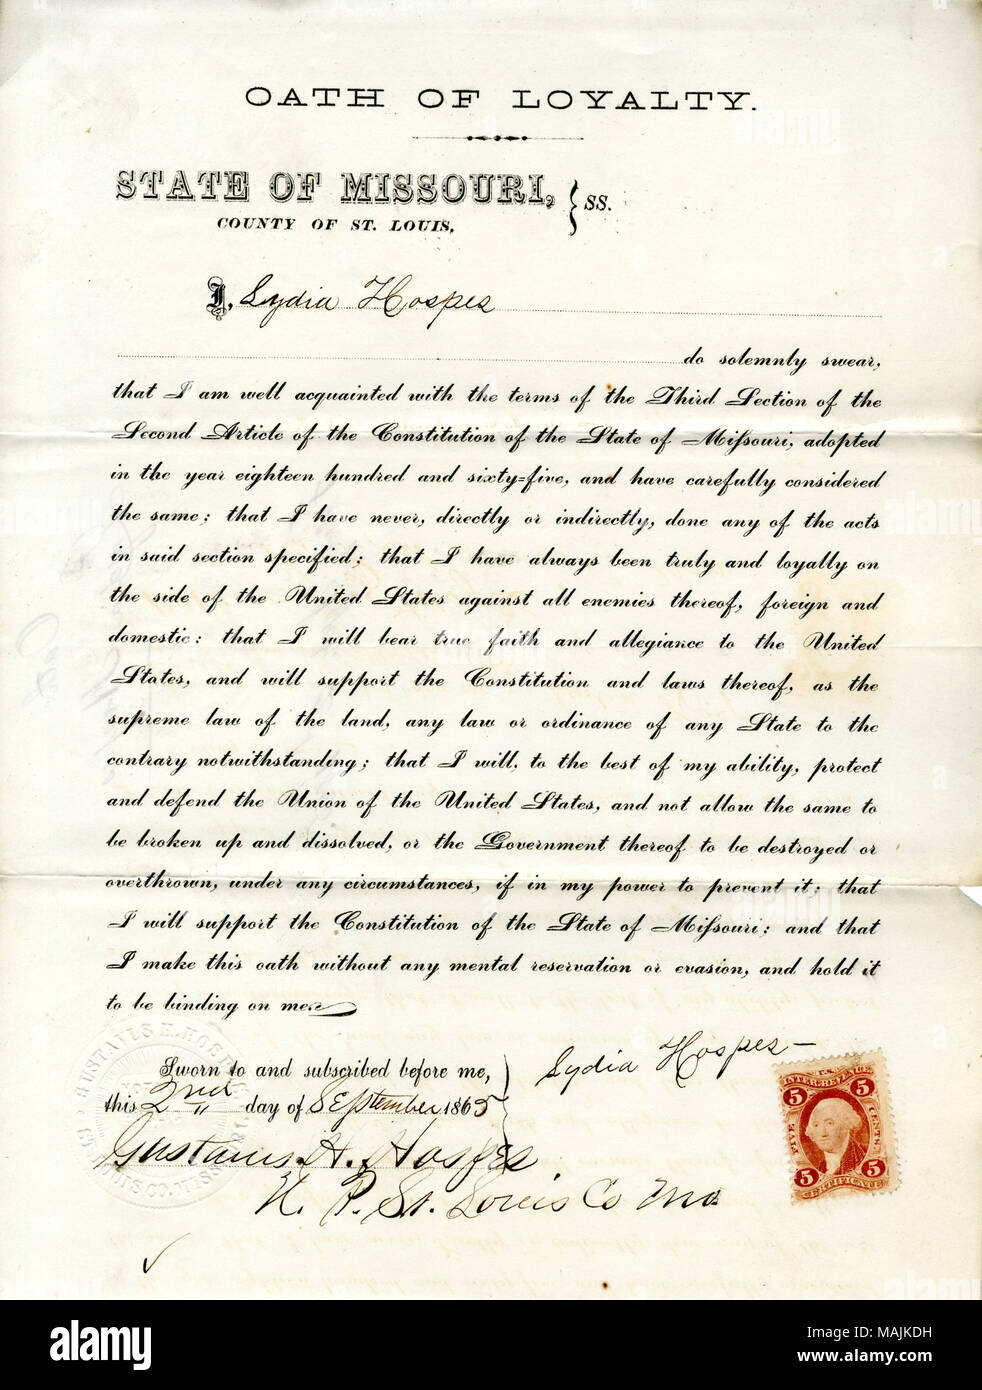 OATH OF LOYALTY.
STATE OF MISSOURI, } SS.
COUNTY OF ST. LOUIS.
I, Lydia Hospes
do solemnly swear,
that I am well acquainted with the terms of the Third Section of the
Second Article of the Constitution of the State of Missouri, adopted
in the year eighteen hundred and sixty=five, and have carefully considered
the same; that I have never, directly or indirectly, done any of the acts
in said section specified; that I have always been truly and loyally on
the side of the United States against all enemies thereof, foreign and
domestic: that I will bear true faith and allegiance to the United
States, and will support the Constitution and laws thereof, as the
supreme law of the land, any law or ordinance of any State to the
contrary notwithstanding; that I will, to the best of my ability, protect
and defend the Union of the United States, and not allow the same to
be broken up and dissolved, or the Government thereof to be destroyed or
overthrown, under any circumstances, if in my power to prevent it; that
I will support the Constitution of the State of Missouri; and that
I make this oath without any mental reservation or evasion, and hold it
to be binding on me.
Lydia Hospes
Sworn to and subscribed before me,
this 2nd day of September 1865
Gustavus H. Hospes
N. P. St. Louis Co Mo
U.S.
INTER. REVENUE
5 5
FIVE CENTS
5 5
CERTIFICATE
alamy
Image ID: MAJKDH
www.alamy.com